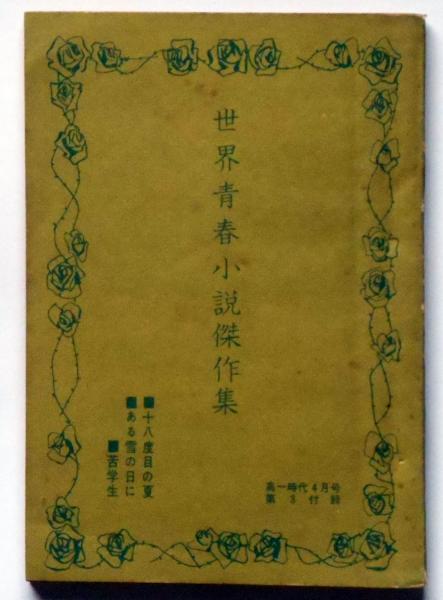 世界青春小説傑作集
■十八度目の夏
■ある雪の日に
■苦学生
高一時代4月号
第3付録